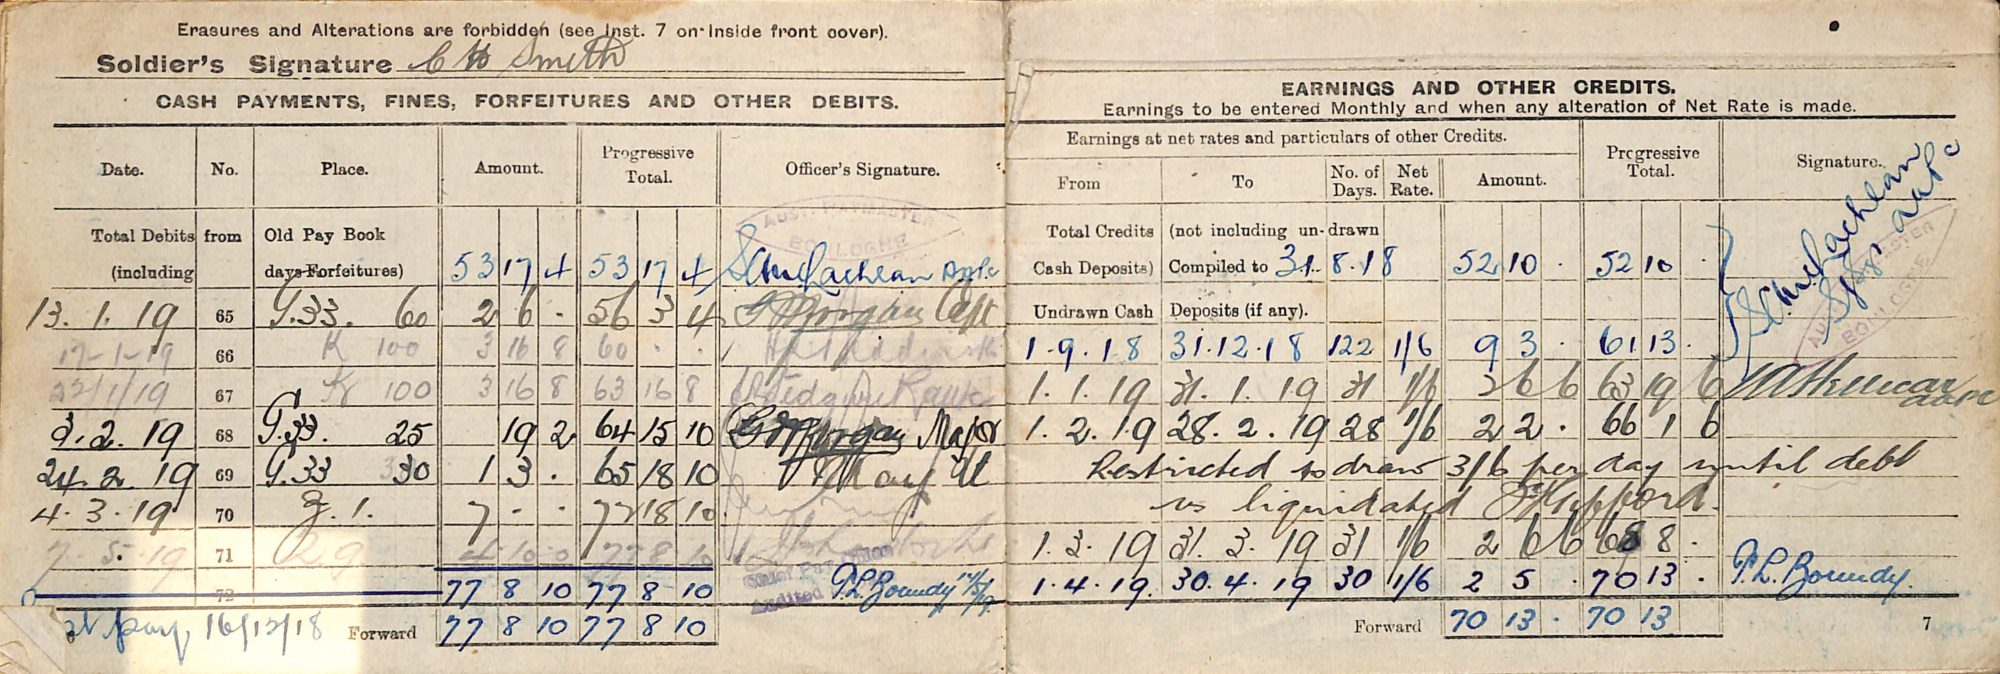 Erasures and Alterations are forbidden (see Inst. 7 on inside front cover).
Soldier's Signature C H Smith
CASH PAYMENTS, FINES, FORFEITURES AND OTHER DEBITS.
Date. No. Place. Amount. Progressive Total. Officer's Signature.
AUST. PAYMASTER BOULOGNE
Total Debits from Old Pay Book
(including days Forfeitures) 53 17 4 53 17 4 S C McLachlan
13. 1. 19 65 G.33. 60 2 6 . 56 3 4 Morgan Capt
17-1-19 66 K 100 3 16 8 60 . .
22/1/19 67 K 100 3 16 8 63 16 8
3. 2. 19 68 G.33. 25 19 2 64 15 10 Morgan Major
24. 2. 19 69 G.33 30 1 3 . 65 18 10 May Lt
4. 3. 19 70 Z. 1. 7 - - 72 18 10
7. 5. 19 71 29 4 10 0 77 8 10
72 77 8 10 77 8 10 P.L. Boundy
Audited
pay, 16/12/18 Forward 77 8 10 77 8 10
EARNINGS AND OTHER CREDITS.
Earnings to be entered Monthly and when any alteration of Net Rate is made.
Earnings at net rates and particulars of other Credits. Progressive Total. Signature.
From To No. of Days. Net Rate. Amount.
Total Credits (not including un-drawn
Cash Deposits) Compiled to 31. 8. 18 52 10 . 52 10 . S C McLachlan Sjt AAPC
AUST. PAYMASTER BOULOGNE
Undrawn Cash Deposits (if any).
1. 9. 18 31. 12. 18 122 1/6 9 3 . 61 13 .
1. 1. 19 31. 1. 19 31 1/6 2 6 6 63 19 6 AAPC
1. 2. 19 28. 2. 19 28 1/6 2 2 . 66 1 6
Restricted to draw 3/6 per day until debt
is liquidated
1. 3. 19 31. 3. 19 31 1/6 2 6 6 68 8 .
1. 4. 19. 30. 4. 19 30 1/6 2 5 . 70 13 . P.L. Boundy.
Forward 70 13 . 70 13 7